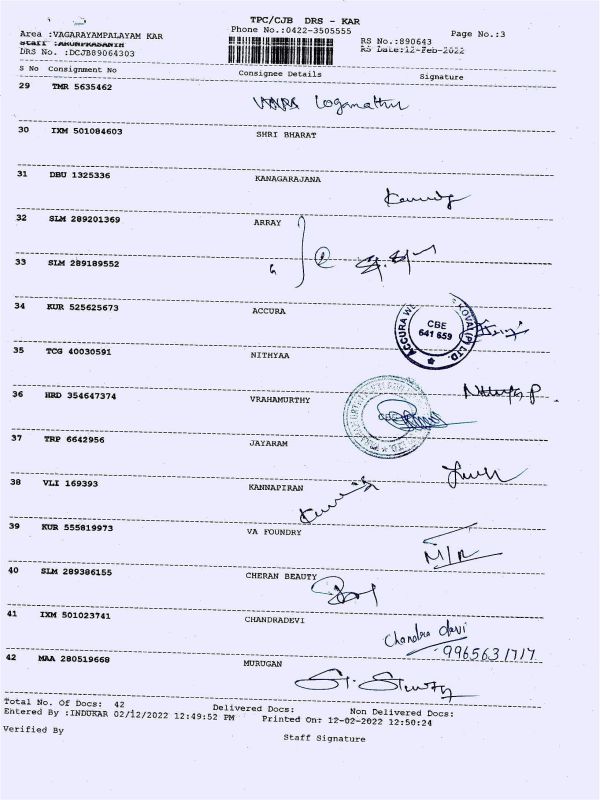 TPC/CJB DRS - KAR
Area :VAGARAYAMPALAYAM KAR Phone No.:0422-3505555 Page No.:3
Staff :ARUNPRASANTH RS No.:890643
DRS No. :DCJB89064303 RS Date:12-Feb-2022
S No Consignment No Consignee Details Signature
29 TMR 5635462 Loganathan
30 IXM 501084603 SHRI BHARAT
31 DBU 1325336 KANAGARAJANA
32 SLM 289201369 ARRAY
33 SLM 289189552
34 KUR 525625673 ACCURA
ACCURA KOVAI (P) LTD. CBE 641 659
35 TCG 40030591 NITHYAA
36 HRD 354647374 VRAHAMURTHY
37 TRP 6642956 JAYARAM
38 VLI 169393 KANNAPIRAN
39 KUR 555819973 VA FOUNDRY
M/R
40 SLM 289386155 CHERAN BEAUTY
41 IXM 501023741 CHANDRADEVI
Chandra devi
9965631717
42 MAA 280519668 MURUGAN
Total No. Of Docs: 42 Delivered Docs: Non Delivered Docs:
Entered By :INDUKAR 02/12/2022 12:49:52 PM Printed On: 12-02-2022 12:50:24
Verified By Staff Signature